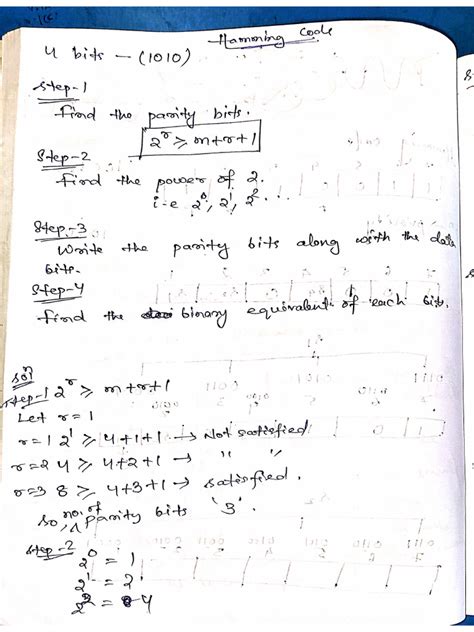 Hamming Code
4 bits - (1010)
Step-1
Find the parity bits.
2^r ≥ m+r+1
Step-2
Find the power of 2.
i-e 2^0, 2^1, 2^2 . . .
Step-3
Write the parity bits along with the data
bits.
Step-4
Find the binary equivalent of each bit.
Sol
Step-1 2^r ≥ m+r+1
Let r=1
r=1 2^1 ≥ 4+1+1 → Not satisfied
r=2 4 ≥ 4+2+1 → " "
r=3 8 ≥ 4+3+1 → satisfied.
So, no. of parity bits '3'.
Step-2
2^0 = 1
2^1 = 2
2^2 = 4